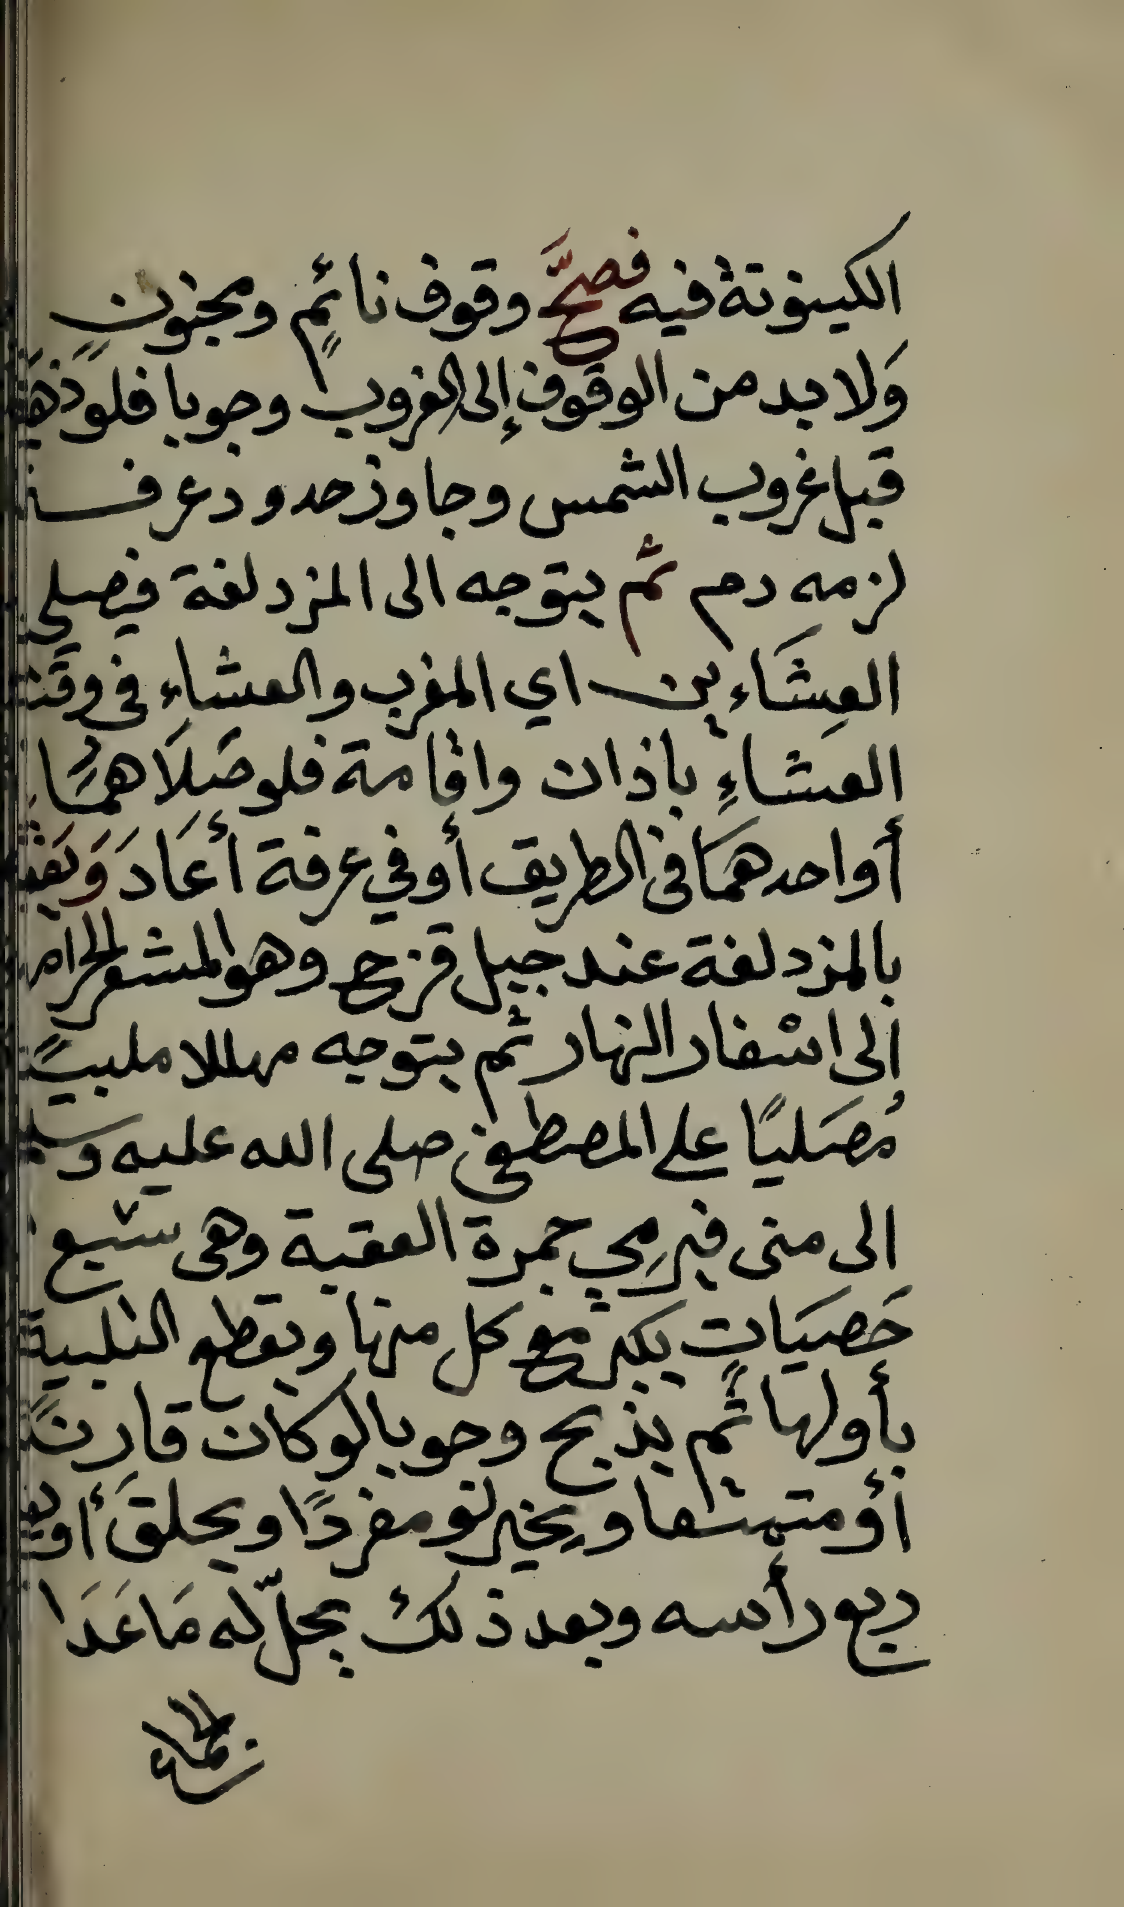 الكينونة فيه فصحَّ وقوف نائمٍ ومجنونٍ
وَلا بد من الوقوف إلى الغروب وجوبا فلو ذهَب
قبل غروب الشمس وجاوز حدود عرفة
لزمه دم ثم يتوجه الى المزدلفة فيصلي
العِشَاءين اي المغرب والعشاءِ في وقت
العشاءِ باذان واقامة فلو صَلَاهمُا
أو احدهمَا فى الطريق أو في عرفة أعَادَ وَيقف
بالمزدلفة عند جبل قزح وهو المشعر الحرام
إلى اسْفار النهار ثم يتوجه مهللا ملبيًا
مُصَليًا على المصطفى صلى الله عليه وسلم
الى منى فيرمِي جمرة العقبة وهى سبع
حَصَيَاتٍ يكبر مع كل منها ويقطع التلبية
بأولها ثُم يذبح وجوبا لو كان قارنًا
أو متمتعا ويخير لو مفردًا ويحلقَ أو
ربع رأسه وبعد ذلك يحلّ له مَا عَدَا